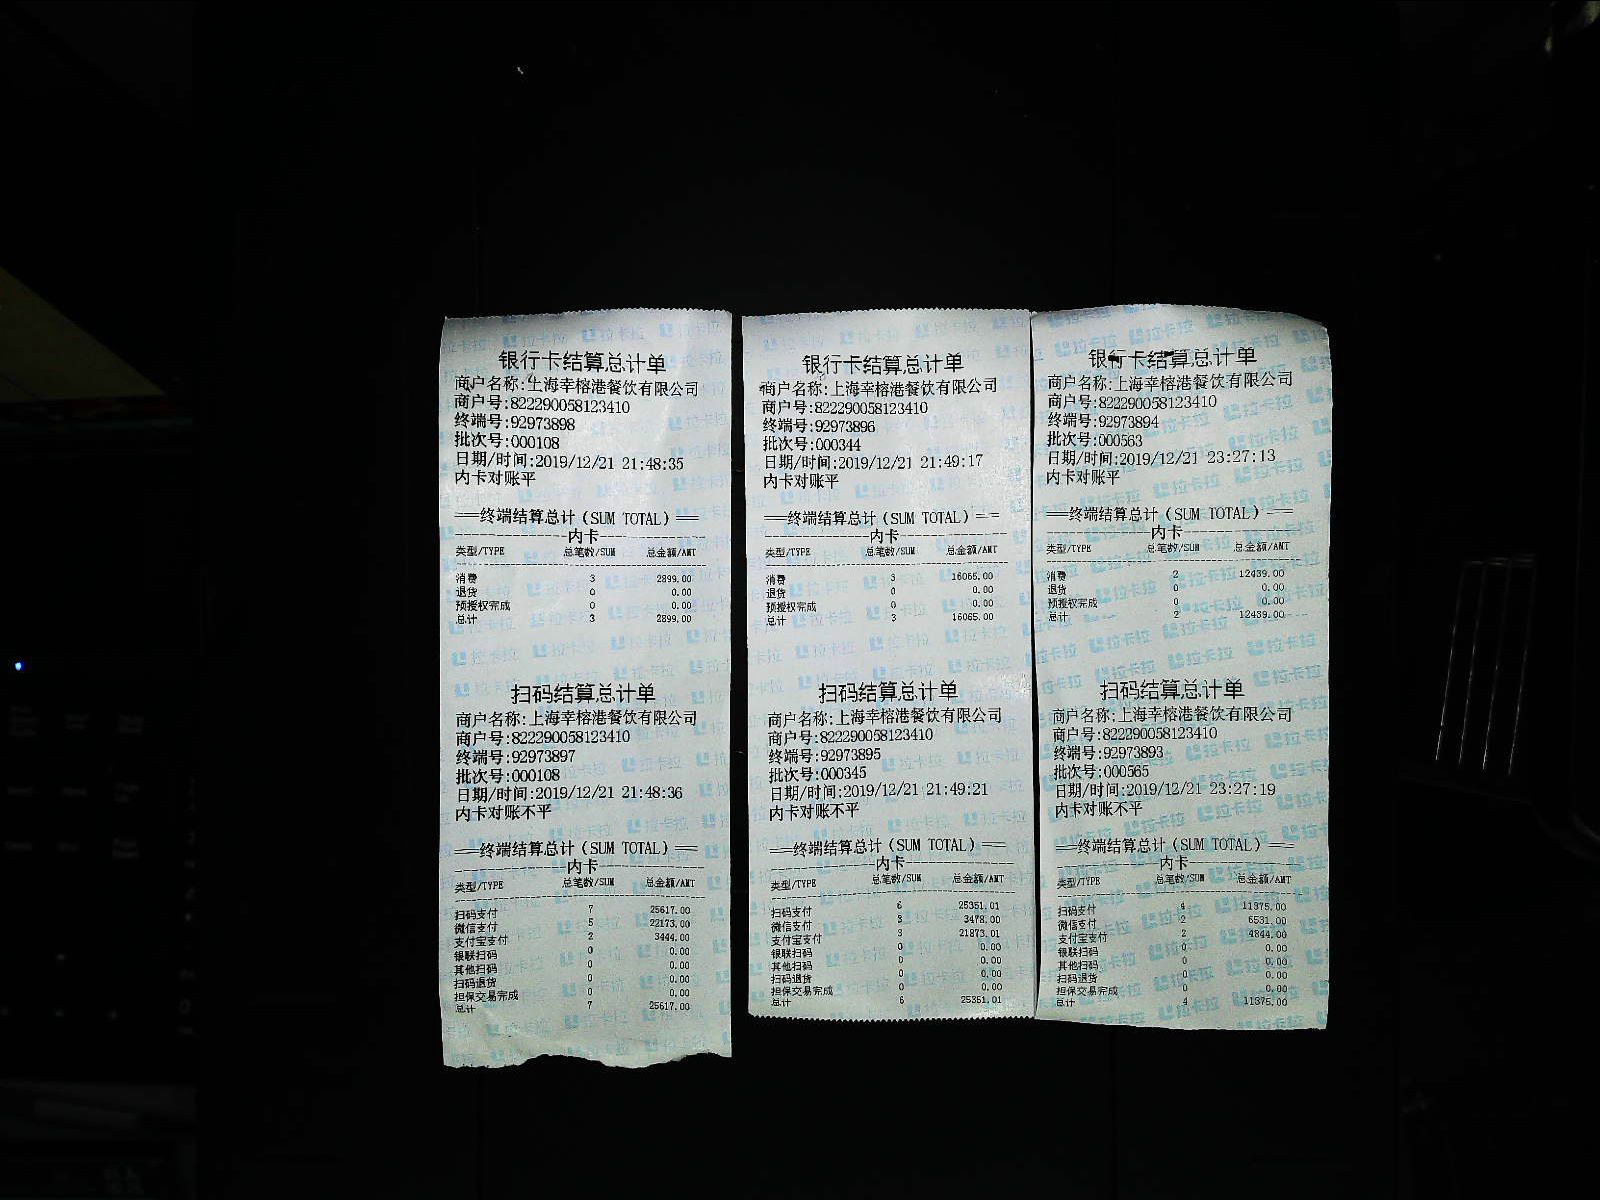 银行卡结算总计单
商户名称:上海幸榕港餐饮有限公司
商户号:822290058123410
终端号:92973898
批次号:000108
日期/时间:2019/12/21 21:48:35
内卡对账平
===终端结算总计(SUM TOTAL)===
内卡
类型/TYPE 总笔数/SUM 总金额/AMT
消费 3 2899.00
退货 0 0.00
预授权完成 0 0.00
总计 3 2899.00
扫码结算总计单
商户名称:上海幸榕港餐饮有限公司
商户号:822290058123410
终端号:92973897
批次号:000108
日期/时间:2019/12/21 21:48:36
内卡对账不平
===终端结算总计(SUM TOTAL)===
内卡
类型/TYPE 总笔数/SUM 总金额/AMT
扫码支付 7 25617.00
微信支付 5 22173.00
支付宝支付 2 3444.00
银联扫码 0 0.00
其他扫码 0 0.00
扫码退货 0 0.00
担保交易完成 0 0.00
总计 7 25617.00
银行卡结算总计单
商户名称:上海幸榕港餐饮有限公司
商户号:822290058123410
终端号:92973896
批次号:000344
日期/时间:2019/12/21 21:49:17
内卡对账平
===终端结算总计(SUM TOTAL)===
内卡
类型/TYPE 总笔数/SUM 总金额/AMT
消费 3 16065.00
退货 0 0.00
预授权完成 0 0.00
总计 3 16065.00
扫码结算总计单
商户名称:上海幸榕港餐饮有限公司
商户号:822290058123410
终端号:92973895
批次号:000345
日期/时间:2019/12/21 21:49:21
内卡对账不平
===终端结算总计(SUM TOTAL)===
内卡
类型/TYPE 总笔数/SUM 总金额/AMT
扫码支付 6 25351.01
微信支付 3 3478.00
支付宝支付 3 21873.01
银联扫码 0 0.00
其他扫码 0 0.00
扫码退货 0 0.00
担保交易完成 0 0.00
总计 6 25351.01
银行卡结算总计单
商户名称:上海幸榕港餐饮有限公司
商户号:822290058123410
终端号:92973894
批次号:000563
日期/时间:2019/12/21 23:27:13
内卡对账平
===终端结算总计(SUM TOTAL)===
内卡
类型/TYPE 总笔数/SUM 总金额/AMT
消费 2 12439.00
退货 0 0.00
预授权完成 0 0.00
总计 2 12439.00
扫码结算总计单
商户名称:上海幸榕港餐饮有限公司
商户号:822290058123410
终端号:92973893
批次号:000565
日期/时间:2019/12/21 23:27:19
内卡对账不平
===终端结算总计(SUM TOTAL)===
内卡
类型/TYPE 总笔数/SUM 总金额/AMT
扫码支付 4 11375.00
微信支付 2 6531.00
支付宝支付 2 4844.00
银联扫码 0 0.00
其他扫码 0 0.00
扫码退货 0 0.00
担保交易完成 0 0.00
总计 4 11375.00